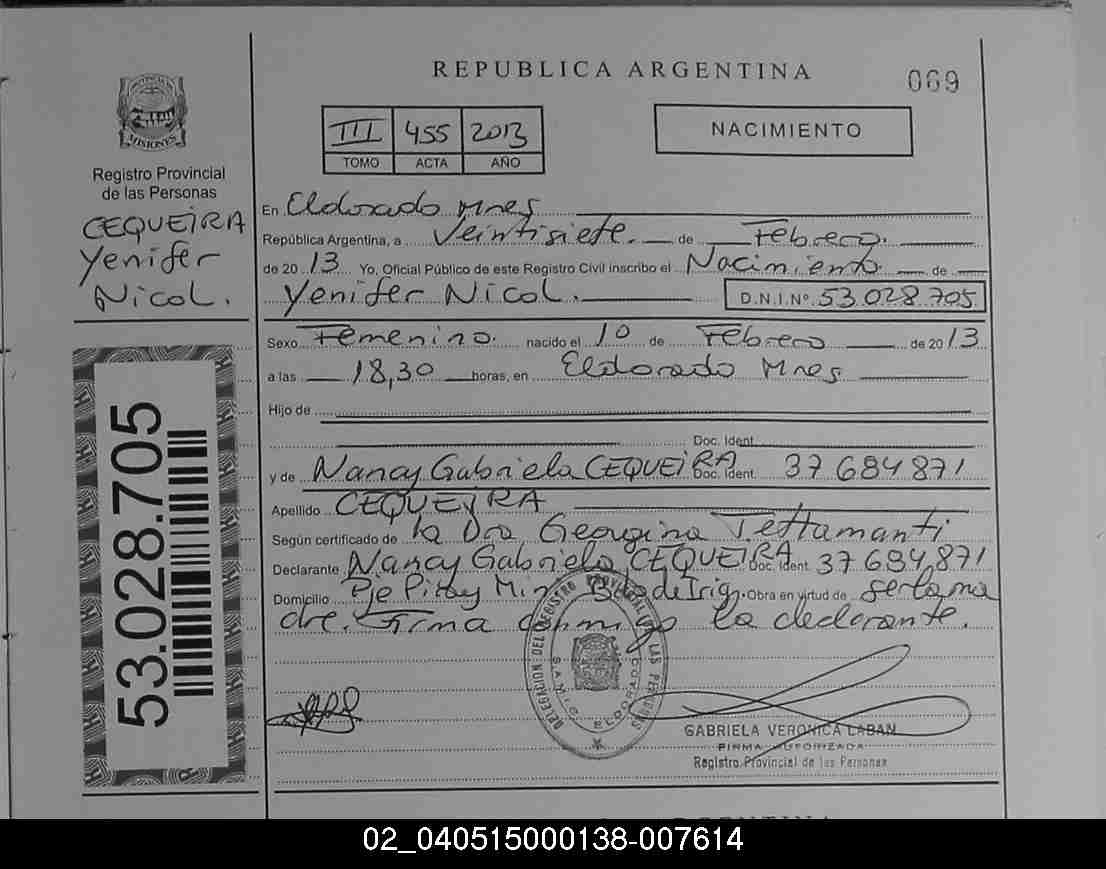 REPUBLICA ARGENTINA
069
PROVINCIA DE MISIONES
Registro Provincial
de las Personas
CEQUEIRA
Yenifer
Nicol.
III 455 2013
TOMO ACTA AÑO
NACIMIENTO
En Eldorado Mnes
República Argentina, a Veintisiete. de Febrero.
de 2013 Yo, Oficial Público de este Registro Civil inscribo el Nacimiento de
Yenifer Nicol. D.N.I.Nº 53.028.705
Sexo Femenino. nacido el 10 de Febrero de 2013
a las 18,30 horas, en Eldorado Mnes
Hijo de
Doc. Ident.
y de Nancy Gabriela CEQUEIRA Doc. Ident. 37684871
Apellido CEQUEYRA
Según certificado de la Dra Georgina Tettamanti
Declarante Nancy Gabriela CEQUEIRA Doc. Ident. 37684871
Domicilio Pje Piray Min Bdo de Irig. Obra en virtud de ser la ma
dre. Firma conmigo la declarante.
53.028.705
DELEGACION DEL REGISTRO PROVINCIAL DE LAS PERSONAS
ELDORADO
GABRIELA VERONICA LABAN
FIRMA AUTORIZADA
Registro Provincial de las Personas
02_040515000138-007614